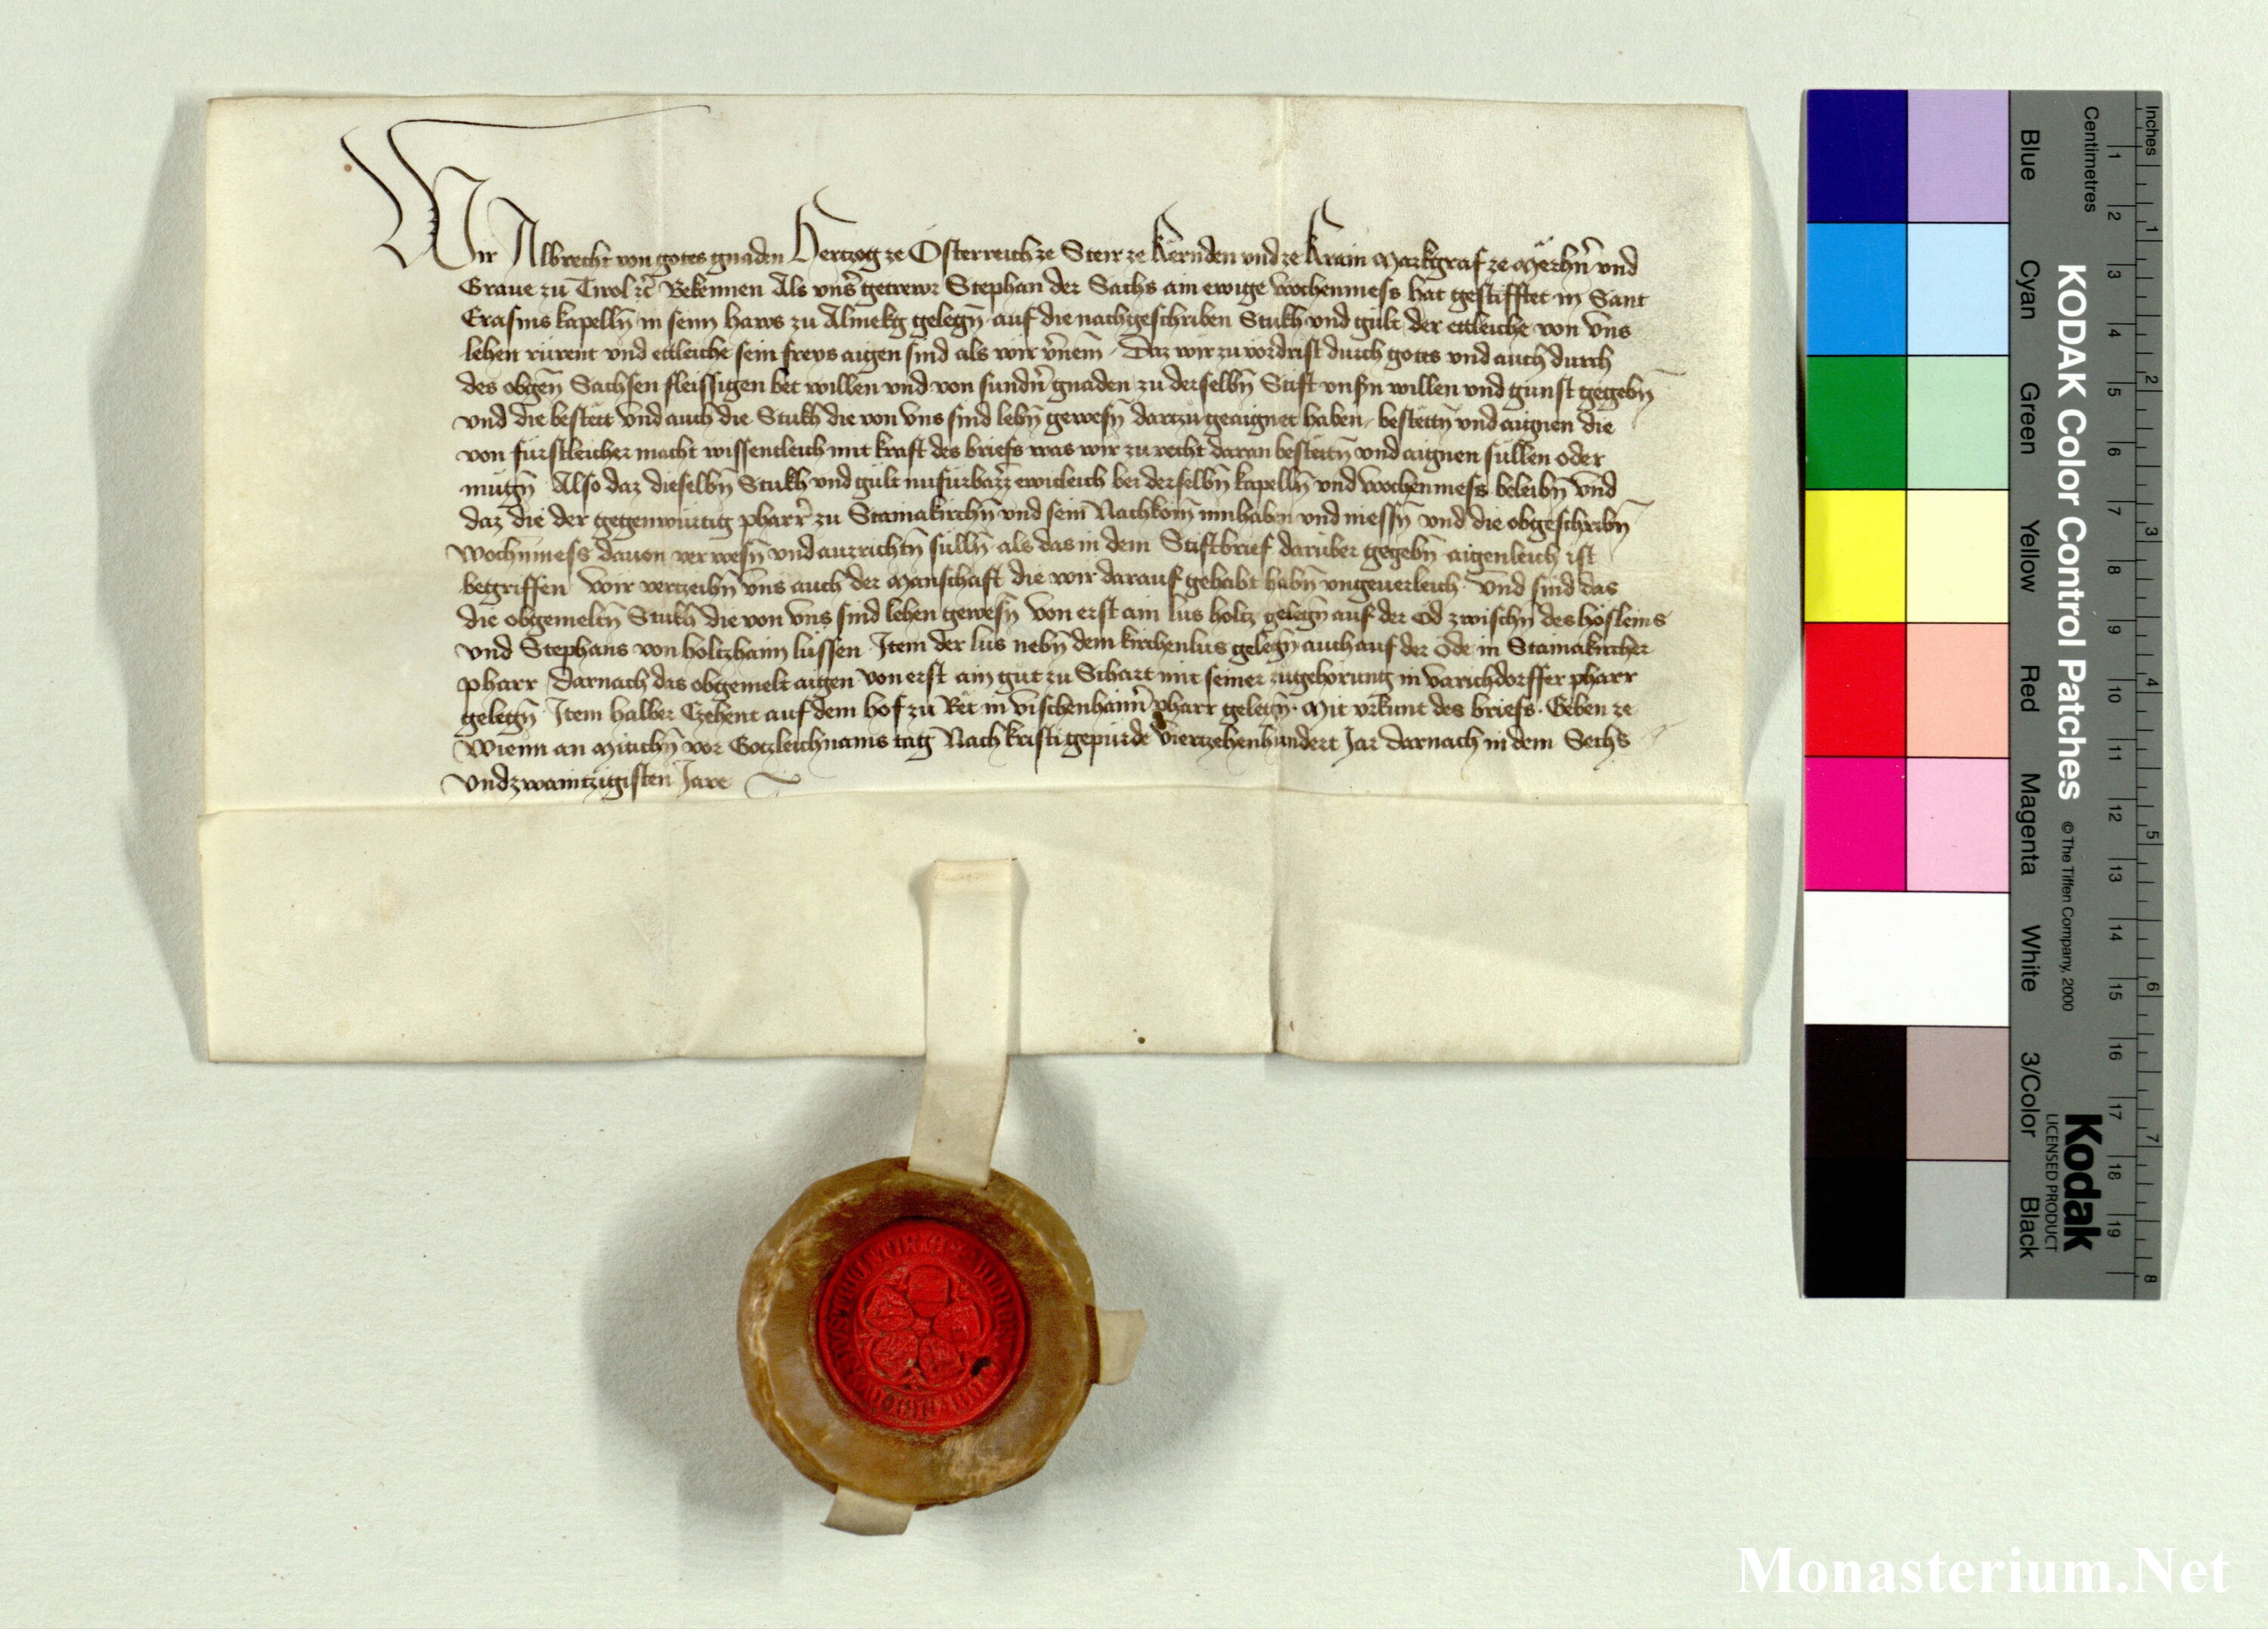 Wir Albrecht von gotes gnaden Hertzog ze Österreich ze Steir ze Kërnden und ze Krain Markgraf ze Mërhñ und
Graue zu Tirol etc̃ Bekennen Als vnsẽr getrewr Stephan der Sachs ain ewige wochenmess hat gestifftet in Sant
Erasms kapellñ in seim haws zu Almekg gelegñ auf die nachgeschriben Stukh und gült der ettleiche von vns
lehen rürent und ettleiche sein freys aigen sind als wir v̄nem̄ Daz wir zuvordrist durch gottes und auch durch
des obgeñ Sachsen fleissigen bet willen und von sundñ gnaden zu derselbñ Stift vnsñ willen und gunst gegebñ
und die bestëtt und auch die Stukh die von vns sind lehñ gewesñ dartzů geaignet haben bestëttñ und aignen die
von fürstleicher macht wissentleich mit kraft des briefs was wir zu recht daran bestëttñ und aignen süllen oder
mügñ Also daz dieselbñ Stukh und gült nufürbaz̄z ewicleich bei derselbñ kapellñ und wochenmess beleibñ und
daz die der gegenwürtig pharr̄ zu Stainakirchñ und sein Nachkom̄ innhaben und niessñ und die obgeschribñ
wochñmess dauon verwesñ und auzrichtñ süllñ als das in dem Stiftbrief darüber gegebñ aigenleich ist
begriffen Wir vertzeihñ vns auch der Manschaft die wir darauf gehabt habñ vngeuerleich Und sind das
die obgemeltñ Stukh die von vns sind lehen gewesñ Von erst ain lus holtz gelegñ auf der Öd zwischñ des höfleins
und Stephans von holtzhaim lüssen Item der lus nebñ dem kirchenlus gelegñ auch auf der Öde in Stainakircher
pharr Darnach das obgemelt aigen von erst ain gut zu Schart mit seiner zugehörung in varichdorffer pharr
gelegñ Item halber Czehent auf dem hof zu Rët in vischenhaim̄ pharr gelegñ Mit vrkunt des briefs Geben ze
Wienn an Mitichñ vor Gotzleichnams tag Nach kristi gepürde viertzehenhundert Jar darnach in dem Sechs
undzwaintzigisten Jare
KODAK Color Control Patches
© The Tiffen Company, 2000
Kodak
LICENSED PRODUCT
Blue Cyan Green Yellow Red Magenta White 3/Color Black
Inches 1 2 3 4 5 6 7 8
Centimetres 1 2 3 4 5 6 7 8 9 10 11 12 13 14 15 16 17 18 19
Monasterium.Net